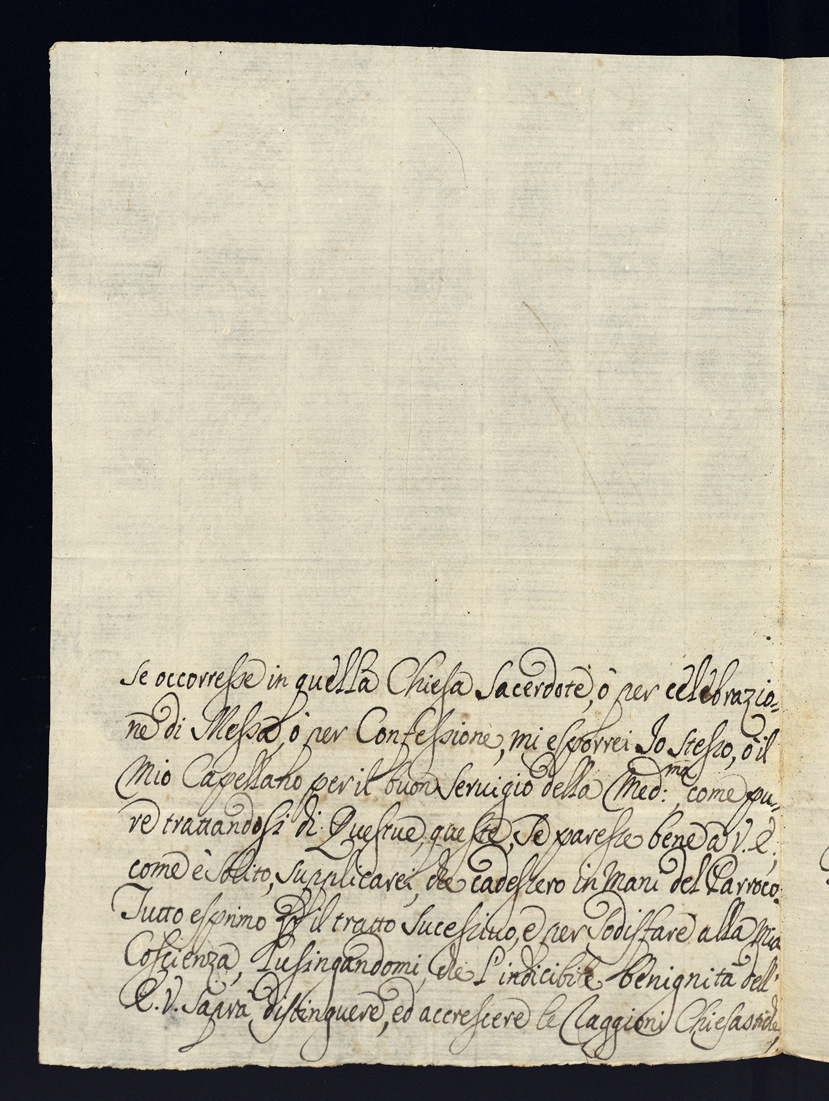 se occorresse in quella Chiesa Sacerdote, ò per celebrazio=
ne di Messa, ò per Confessione, mi esporrei Io stesso, ò il
Mio Capellano per il buon Servigio della Med:ma, come pu=
re trattandosi di Questue, queste, Se paresse bene à V. E.,
come è solito, supplicarei, che cadessero in Mani del Parroco.
Tutto esprimo il tratto sucessivo, e per Sodisfare alla Mia
Coscienza, Lusingandomi, che L'indicibile benignità dell'
E. V. Saprà distinguere, ed accrescere le Raggioni Chiesastiche,